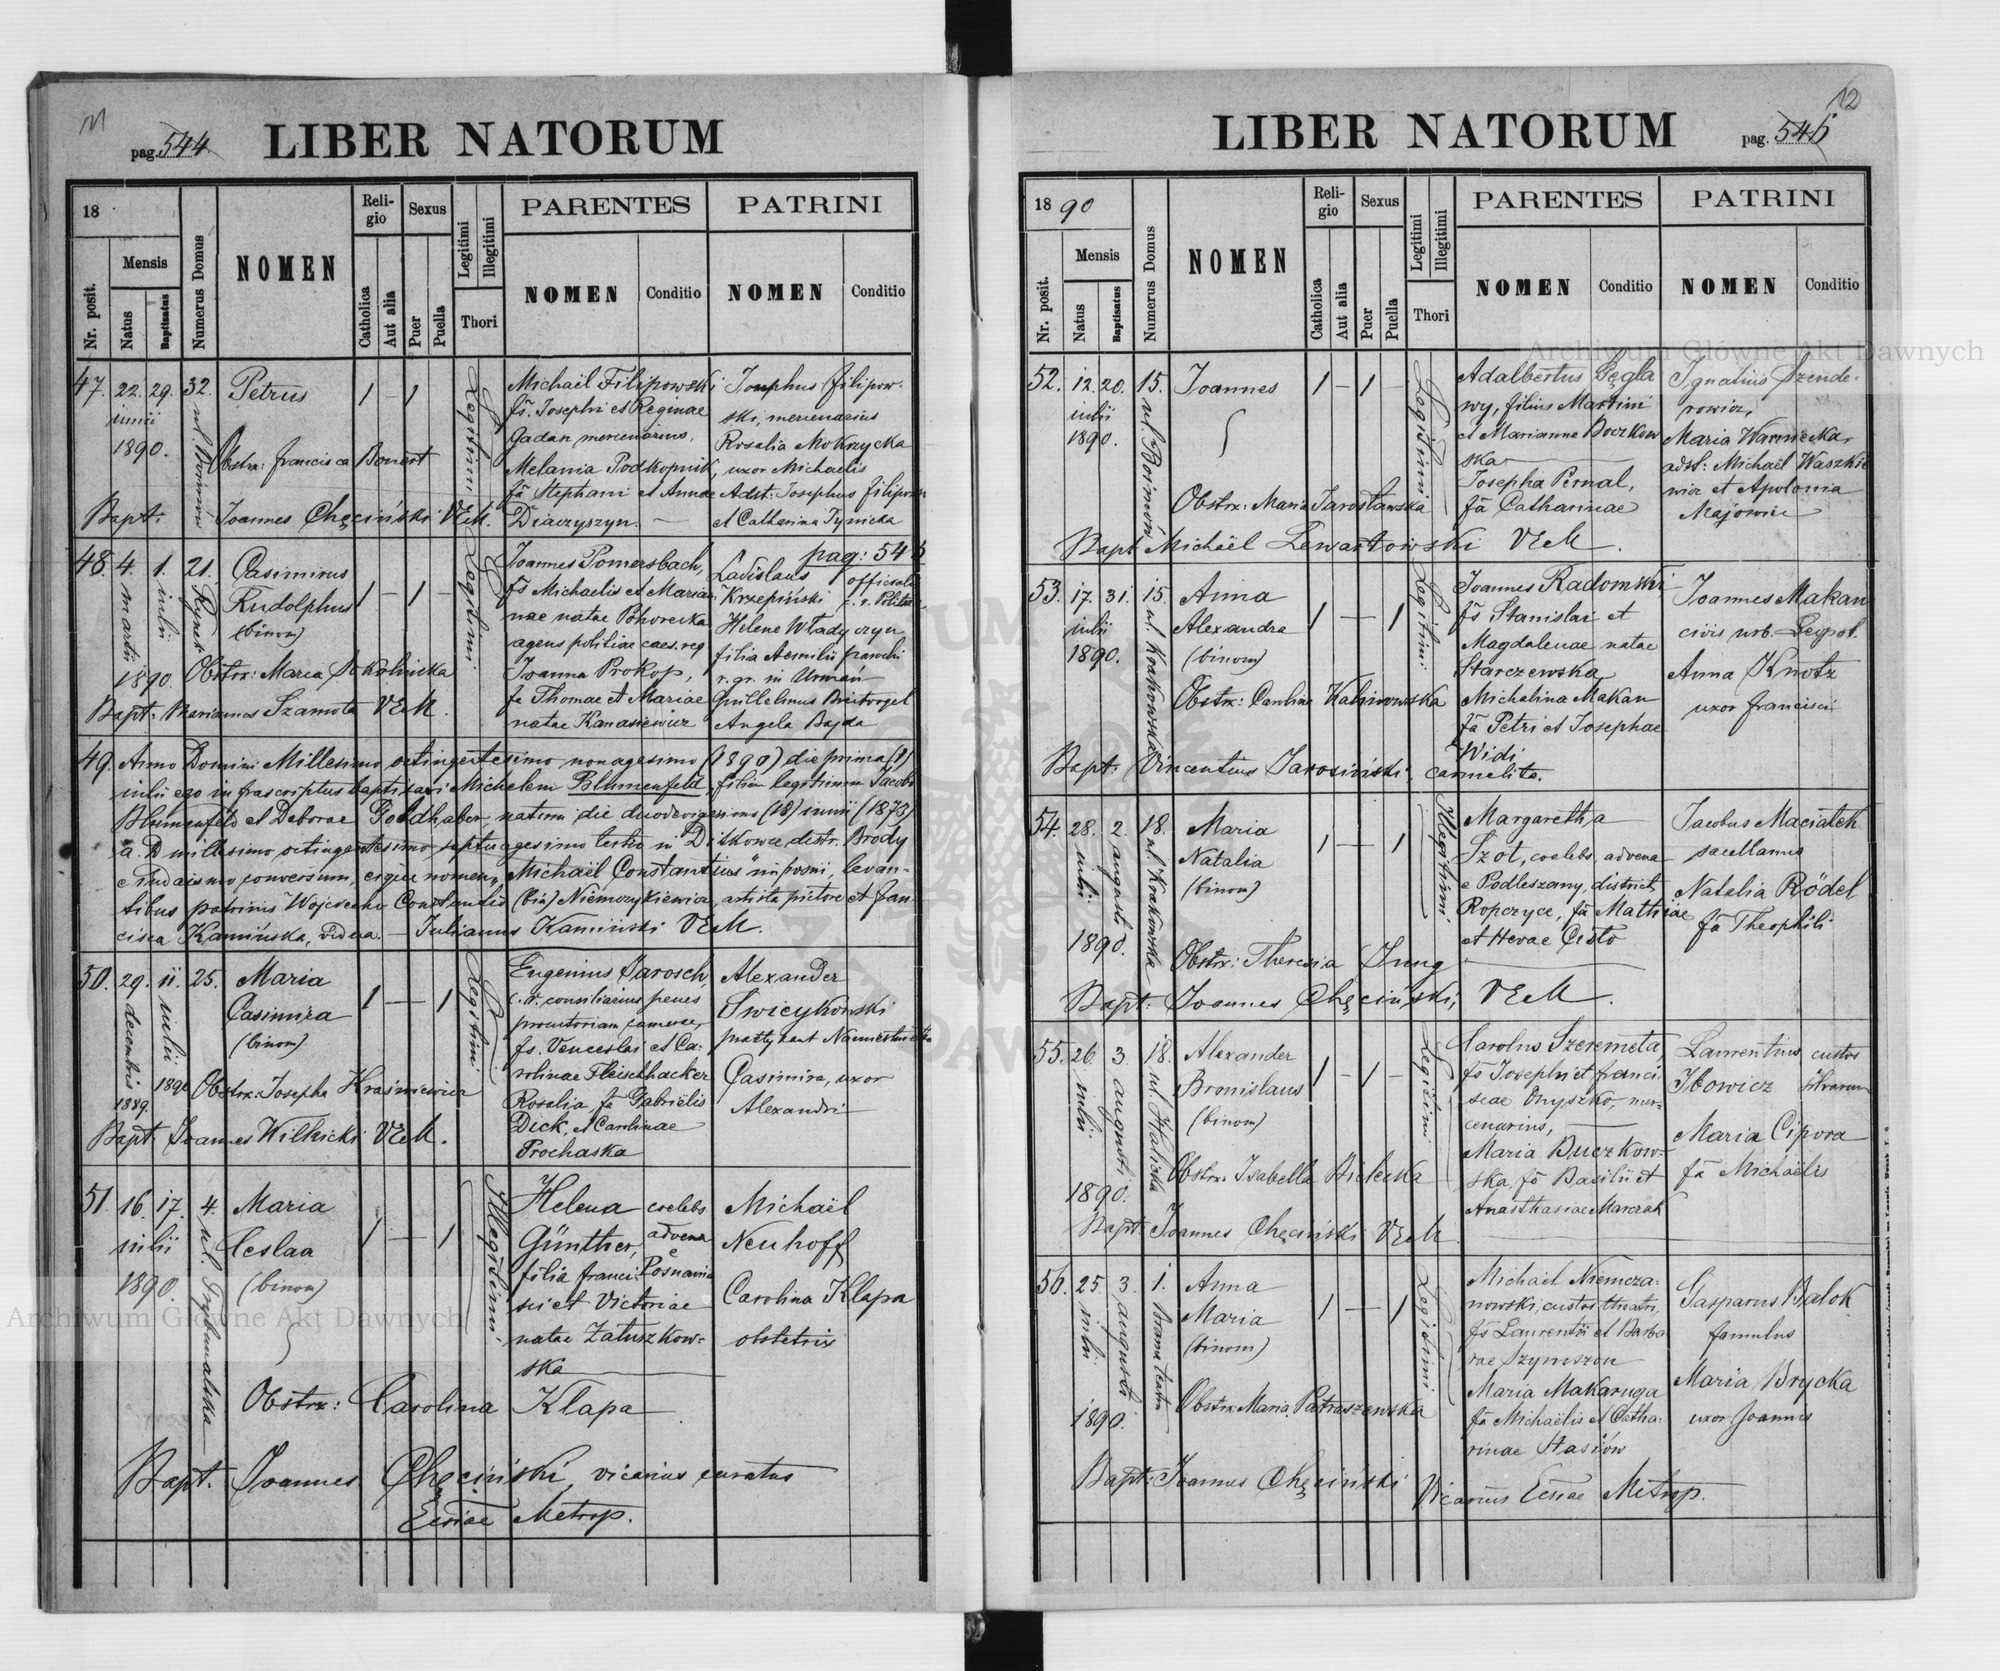 pag. 544
LIBER NATORUM
18
Nr. posit.
Mensis
Natus
Baptisatus
Numerus Domus
NOMEN
Religio
Catholica
Aut alia
Sexus
Puer
Puella
Legitimi
Illegitimi
Thori
PARENTES
NOMEN
Conditio
PATRINI
NOMEN
Conditio
47. 22. 29. 32. Petrus 1 - 1
iunii
1890.
Legitimi
Michaël Filipowski
fs. Josephi et Reginae
Gadan mercenarius,
Melania Podkopnik,
fa Stephani et Annae
Diaczyszyn. —
Josephus Filipow-
ski, mercenarius
Rosalia Mokrzycka
uxor Michaelis
Adst: Josephus Filipowski
et Catharina Tynicka
Obstrx: Francisca Bonert
Bapt: Joannes Chęciński VEM.
48. 4. 1. 21. Casimirus
Rynek
martii iulii
Rudolphus 1 - 1 -
(binom)
1890.
Legitimi
Joannes Pomersbach,
fs Michaelis et Marian-
nae natae Pohorecka
agens politiae caes. reg
Joanna Prokop,
fa Thomae et Mariae
natae Kanasiewicz
pag: 545
Ladislaus
Krzepiński
Helene Władyczyn
filia Aemilii parochi
r. gr. in Urmań
Guillelmus Breitvogel
Angela Bajda
Obstrx: Maria Sokolnicka
Bapt: Marianus Szamota VEM.
49. Anno Domini Millesimo octingentesimo nonagesimo (1890) die prima (1)
iulii ego infrascriptus baptisavi Michelem Blumenfeld, filium legitimum Jacobi
Blumenfeld et Deborae Goldhaber, natum die duodevigesimo (18) iunii (1873)
a. D millesimo octingentesimo septuagesimo tertio in Ditkowce, distr. Brody
e Iudaismo conversum, eique nomen „Michaël Constantius" imposui, levan-
tibus patrinis Wojciecho Constantio (bin) Niemczykiewicz, artista pictore et Fran-
cisca Kamińska, vidua. — Julianus Kamiński VEM.
50. 29. 11. 25. Maria
decembris iulii
1889. 1890
Casimira 1 — 1
(binom)
Legitimi
Eugenius Jarosch,
c. r. consiliarius penes
procutoriam camerae,
fs. Venceslai et Ca-
rolinae Fleischhacker
Rosalia fa Gabriëlis
Dick, et Carolinae
Prochaska
Alexander
Casimira, uxor
Alexandri
Obstrx: Josepha Kraśniewicz
Bapt: Joannes Wilkicki VEM.
51 16. 17. 4. Maria
iulii
ul. Trybunalska
1890.
Ceslaa 1 - - 1
(binom)
Illegitimi
Helena coelebs
Günther, advena
e
filia Franci- Posnania
sci et Victoriae
natae Załuszkow-
ska
Michaël
Neuhoff
Carolina Klapa
obstetrix
Obstrx: Carolina Klapa
Bapt. Joannes Chęciński, vicarius curatus
Ecsiae Metrop.
12
LIBER NATORUM
pag. 545
1890
Nr. posit.
Mensis
Natus
Baptisatus
Numerus Domus
NOMEN
Religio
Catholica
Aut alia
Sexus
Puer
Puella
Legitimi
Illegitimi
Thori
PARENTES
NOMEN
Conditio
PATRINI
NOMEN
Conditio
52. 12. 20. 15. Joannes 1 - 1 -
iulii
1890.
ul. Boimów
Legitimi
Adalbertus Cęgla
wy, filius Martini
et Marianne Boczkow
ska
Josepha Pernal,
fa Catharinae
Ignatius Szende-
rowicz,
Maria Warniecka,
adst: Michaël Waszkie
wicz et Apolonia
Majowicz
Obstrx: Maria Jarosławska
Bapt Michaël Lewartowski VEM.
53. 17. 31. 15. Anna
iulii
1890.
ul. Krakowska
Alexandra 1 — 1
(binom)
Legitimi
Joannes Radomski
fs Stanislai et
Magdalenae natae
Starczewska
Michalina Makan
fa Petri et Josephae
Widi
Joannes Makan
civis urb. Leopol.
Anna Knotz
uxor Francisci
Obstrx: Paulina Kalinowska
Bapt: Vincentius Jarosiński, carmelita.
54. 28. 2. 18. Maria
iulii augusti
ul. Krakowska
Natalia 1 - - 1
(binom)
1890.
Illegitimi
Margaretha
Szot, coelebs, advena
e Podleszany, district
Ropczyce, fa Mathiae
et Hevae Cisto
Jacobus Maciałek
sacellanus
Natalia Rödel
fa Theophili
Obstrx: Theresia Jung
Bapt: Joannes Chęciński, VEM.
55. 26 3 18. Alexander
iulii augusti
ul. Halicka
Bronislaus 1 - 1 -
(binom)
1890.
Legitimi
Carolus Szeremeta,
fs Josephi et Franci-
scae Onyszko, mer-
cenarius,
Maria Buczkow-
ska, fa Basilii et
Anasthasiae Marczak
Laurentius custos
Ibowicz
Maria Cipora
fa Michaëlis
Obstrx. Isabella Bielecka
Bapt: Joannes Chęciński VEM
56. 25. 3. 1. Anna
iulii augusti
Brama teatru
Maria 1 — 1
(binom)
1890.
Legitimi
Michaël Niemcza-
nowski, custos theatri,
fs Laurentii et Barba
rae Szymszon
Maria Makaruga
fa Michaëlis et Catha-
rinae Stasiów
Gasparus Balok
famulus
Maria Brycka
uxor Joannis
Obstrx Maria Petraszewska
Bapt: Joannes Chęciński
Vicarius Ecsiae Metrop.
Archiwum Główne Akt Dawnych
Archiwum Główne Akt Dawnych